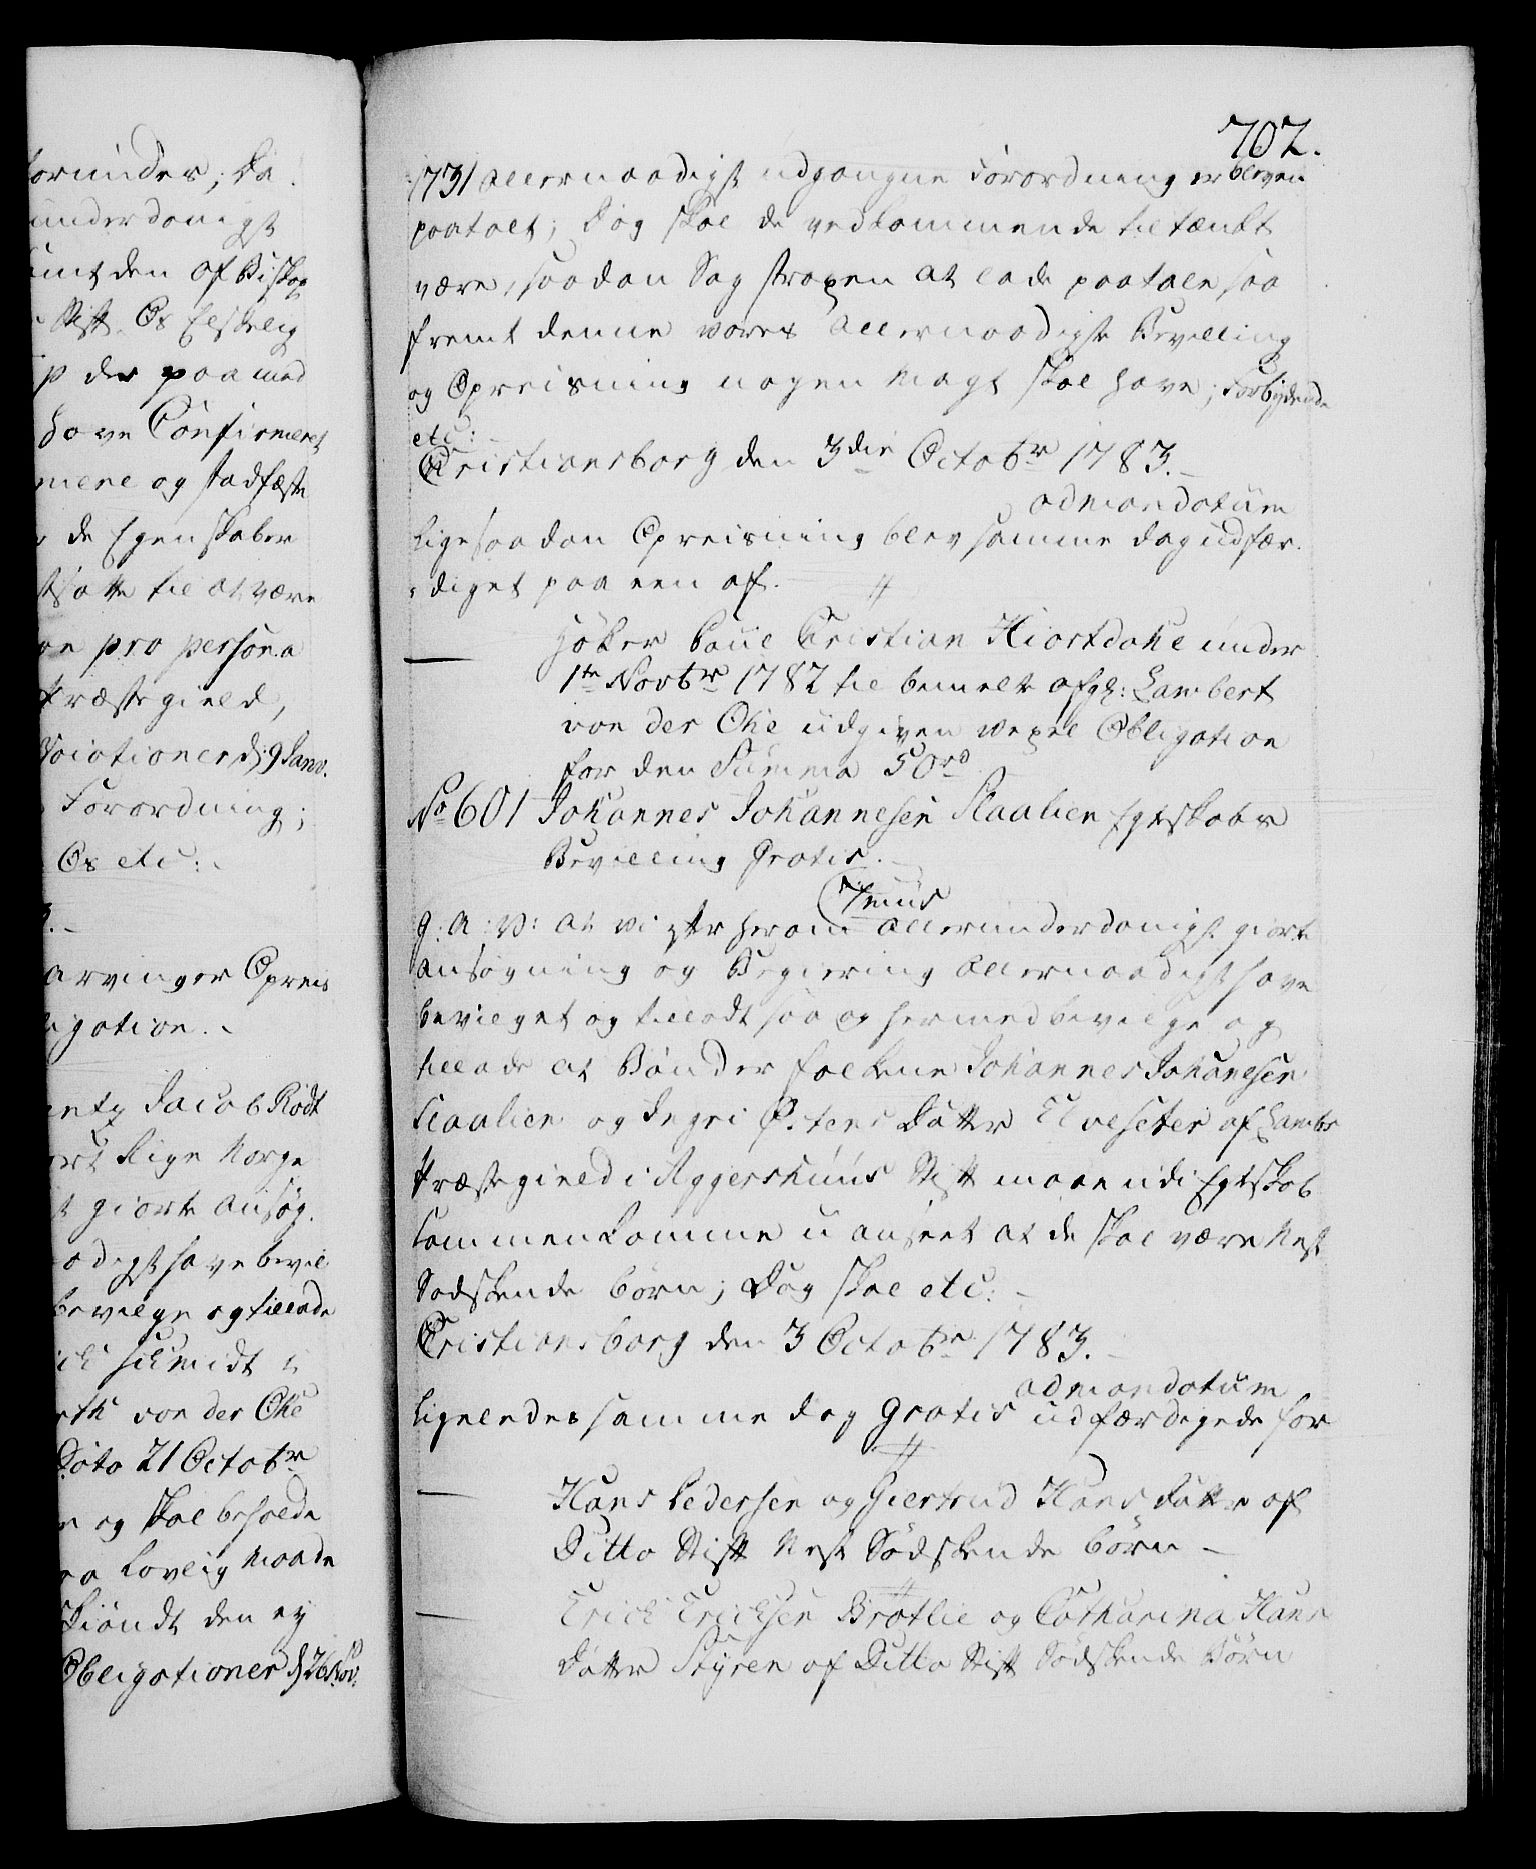 orunder, da
underdanigst
samt den af Biskop
Stift, Os Elskelig
p der paa med
have Confirmeret
mere og stadfæste
de Egenskaber
tsatte til at være
pro persona
Præstegield,
sociationer d: 9 Janv.
Forordning;
Os etc:
arvinger Opreis
ligation.
Jacob Rödt
ort Rige Norge
giorte Ansøg.
adigst have bevil
bevilge og tillade
Schmidt
von der Ohe
Dato 21 Octobr
og skal beholde
lovlig Maade
skiöndt den ey
Obligationer d. 26 Nov.
702.
1731 allernaadigst udgangne Forordning er bleven
paatalt; dog skal de vedkommende tiltænkt
være, saadan Sag straxen at lade paatale saa
fremt denne vores allernaadigste Bevilling
og Opreisning nogen Magt skal have; Forbydende
etc:
Christiansborg den 3die Octobr 1783.
ad mandatum
Ligesaadan Opreisning blev samme dag udfær-
diget paa een af
Höker Poul Christian Hiortdahl under
1te Novbr 1782 til bemelte afgl: Lambert
von der Ohe udgiven Wexel Obligation
for den Summa 50rd
No 601 Johannes Johannesen Slaalien Egteskabs
Bevilling Gratis.
7mus
G: A: V: at vi efter herom allerunderdanigst giorte
Ansøgning og Begiering allernaadigst have
bevilget og tilladt saa og hermed bevilge og
tillade at Bönder folkene Johannes Johanesen
Slaalien og Ingri Ostens Datter Elvesæter af Lomb
Præstegield i Aggershuus Stift maae udi Egteskab
sammenkomme uanseet at de skal være Nest
Sødskende børn; Dog skal etc:
Christiansborg den 3 Octobr 1783.
ad mandatum
Ligeledes samme dag Gratis udfærdigede for
Hans Pedersen og Giertrud Hans datter af
Ditto Stift Nest Södskende börn
Erich Erichsen Brotlie og Catharina Hans
datter Styren af Ditto Stift Södskende Börn